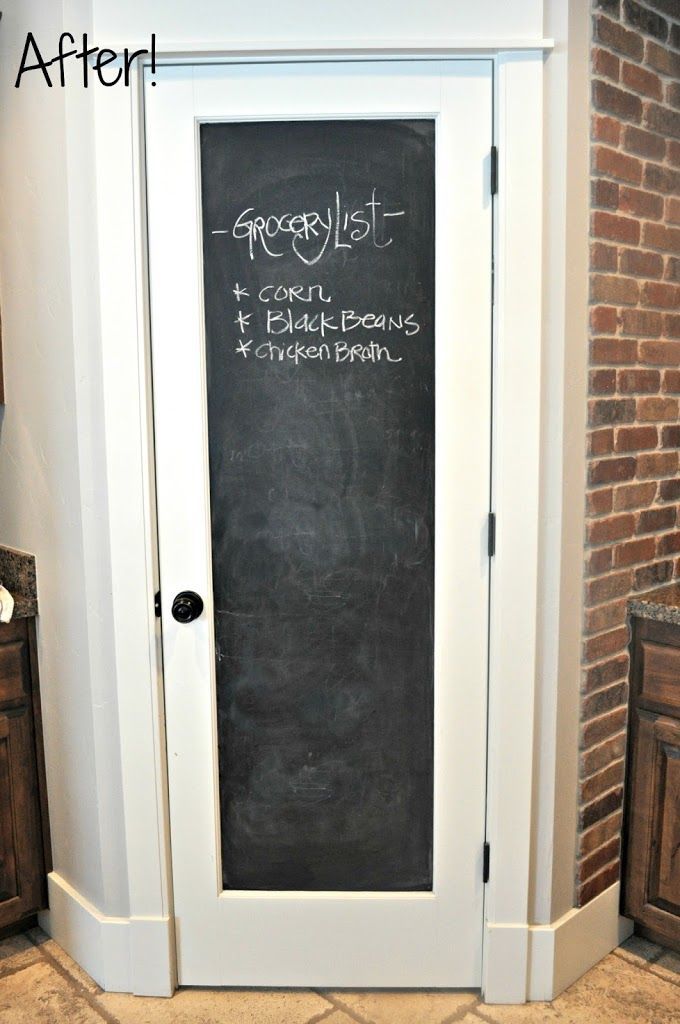 After!
- Grocery List -
* Corn
* Black Beans
* Chicken Broth